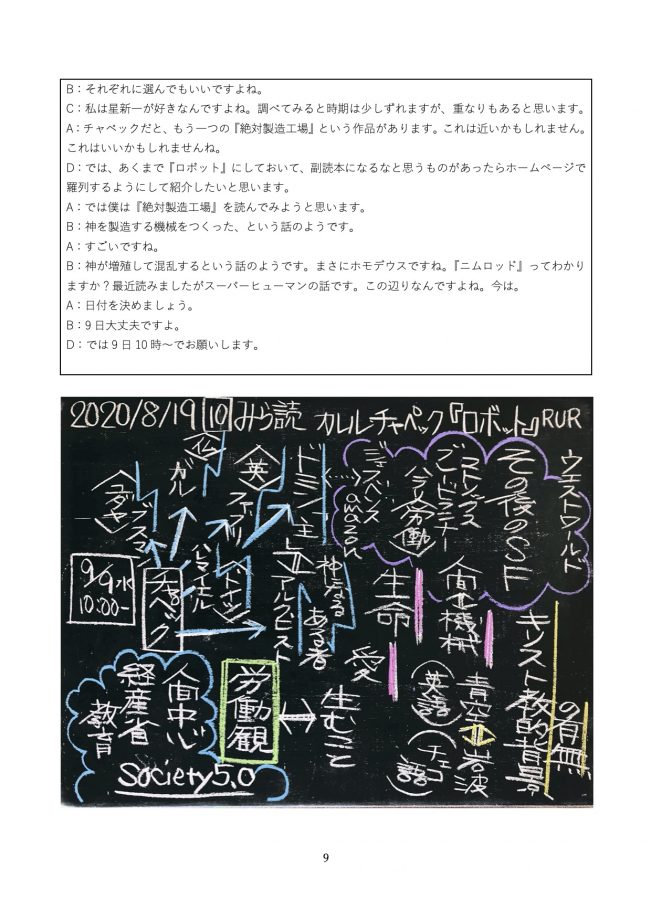 B：それぞれに選んでもいいですよね。
C：私は星新一が好きなんですよね。調べてみると時期は少しずれますが、重なりもあると思います。
A：チャペックだと、もう一つの『絶対製造工場』という作品があります。これは近いかもしれません。
これはいいかもしれませんね。
D：では、あくまで『ロボット』にしておいて、副読本になるなと思うものがあったらホームページで
羅列するようにして紹介したいと思います。
A：では僕は『絶対製造工場』を読んでみようと思います。
B：神を製造する機械をつくった、という話のようです。
A：すごいですね。
B：神が増殖して混乱するという話のようです。まさにホモデウスですね。『ニムロッド』ってわかり
ますか？最近読みましたがスーパーヒューマンの話です。この辺りなんですよね。今は。
A：日付を決めましょう。
B：9日大丈夫ですよ。
D：では9日10時～でお願いします。
2020/8/19 10 みら読 カレル チャペック『ロボット』RUR
ウエストワールド
その後のSF
ストックス
ごードラチー
今の労働
ジェフベゾス
amazon
ドミン 主
＝アルクビスト
神になる
ある者
〈英〉
ファブリ
〈仏〉
ガル
ハレマイエル
〈ユダヤ〉
ブスマン
ヘレナ
チャペック
9/9水
10:00～
キリスト教的背景
の有無
人間と機械
生命
愛
生むこと
↔
労働観
青空 = 岩波
(英語) (チェコ語)
人間中心
経産省
教育
Society5.0
9